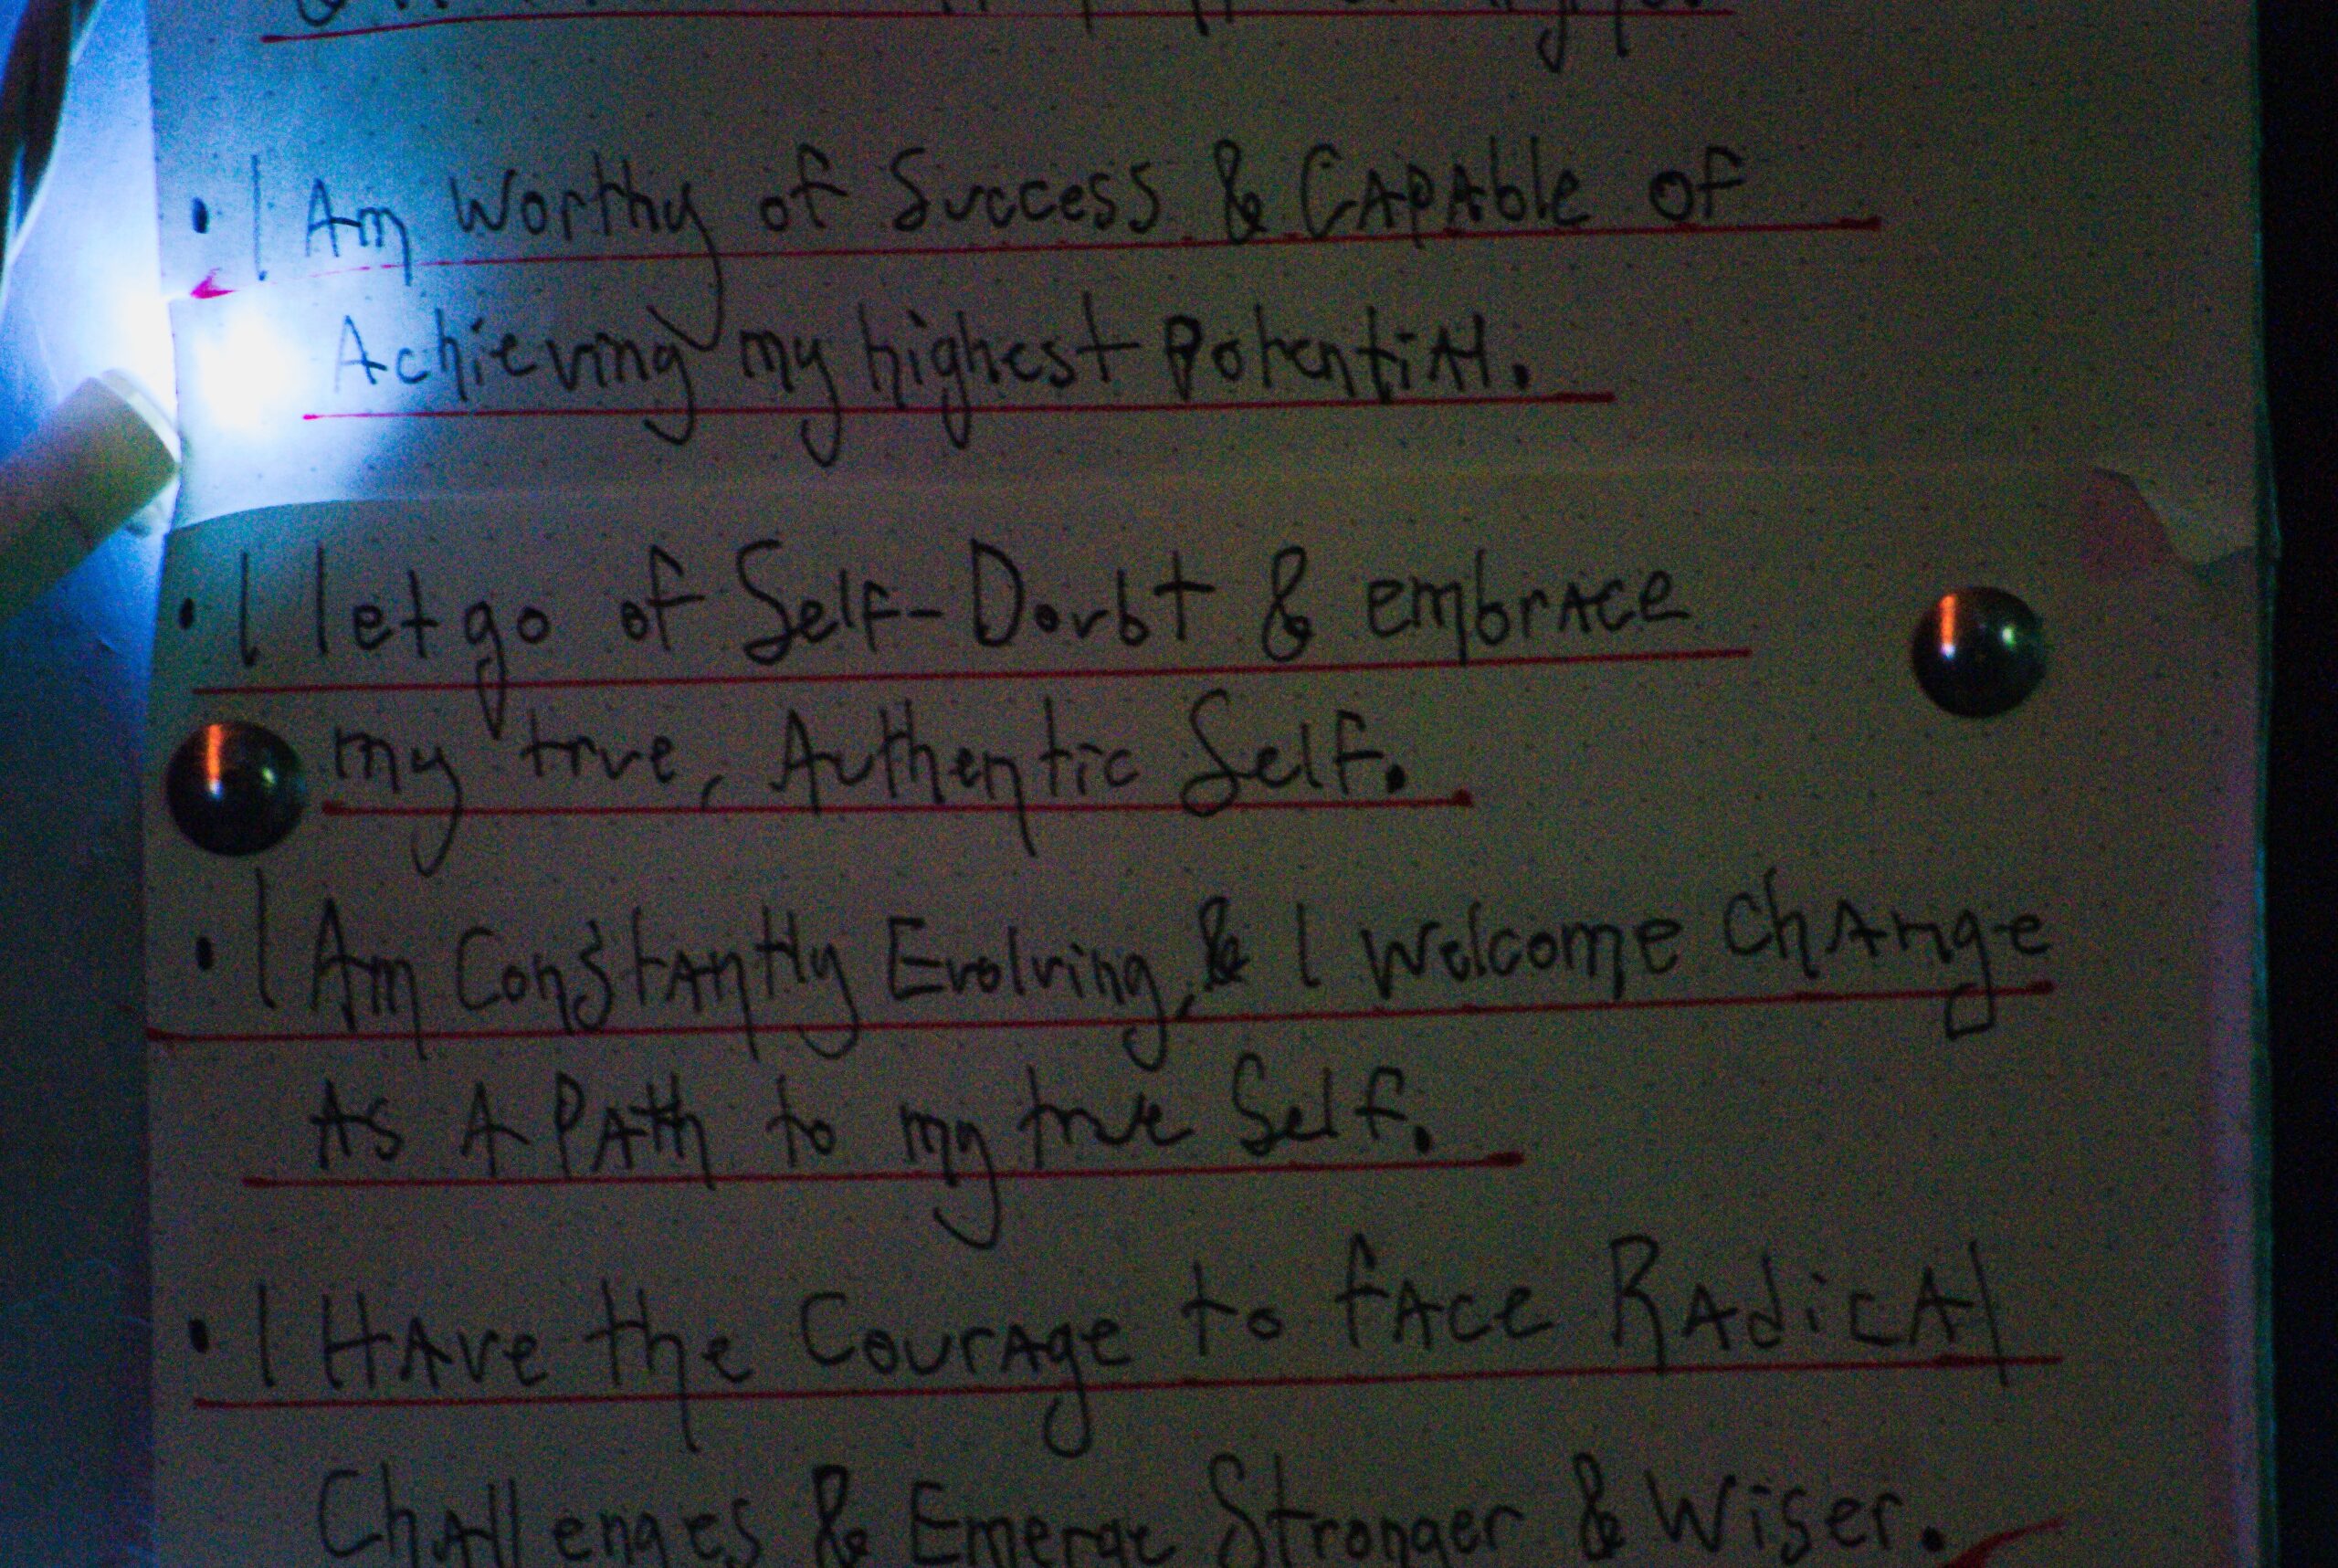 • I Am Worthy of Success & CAPAble of
Achieving my highest PotentiAl.
• I let go of Self-Doubt & embrAce
my true, Authentic Self.
• I Am ConstAntly Evolving, & I Welcome ChAnge
As A PAth to my true Self.
• I HAve the CourAge to fAce RAdicAl
ChAllenges & Emerge Stronger & Wiser.